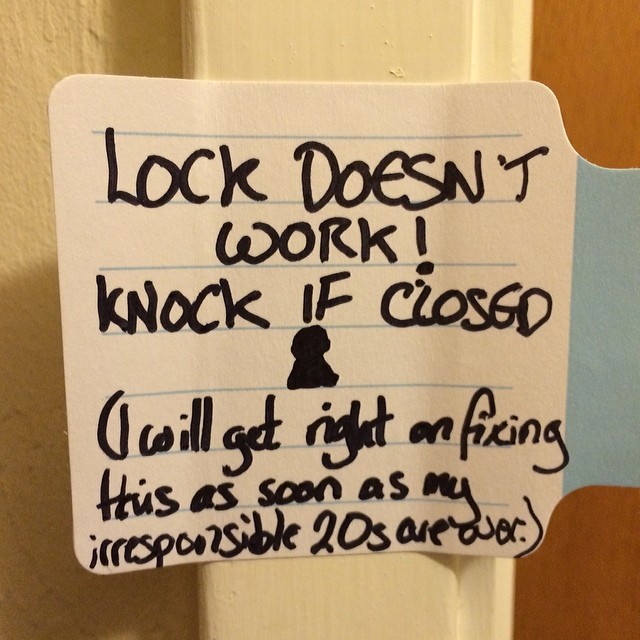 LOCK DOESN'T
WORK!
KNOCK IF CLOSED
(I will get right on fixing
this as soon as my
irresponsible 20s are over.)